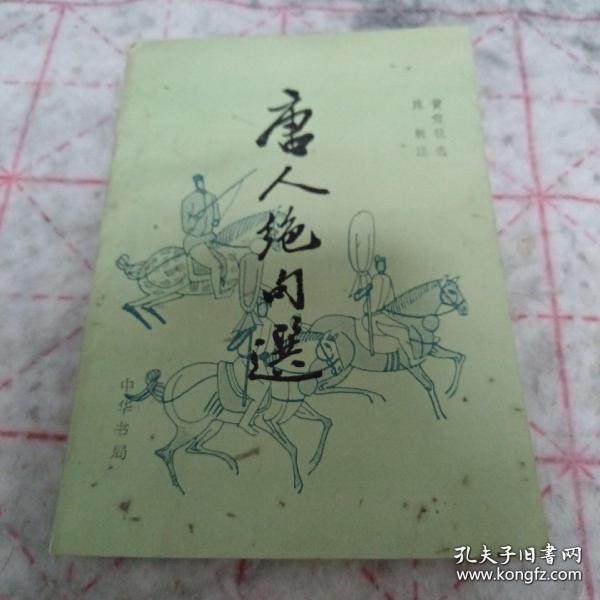 唐人绝句選
黄肃秋选
陈新注
中华书局
孔夫子旧书网
www.kongfz.com